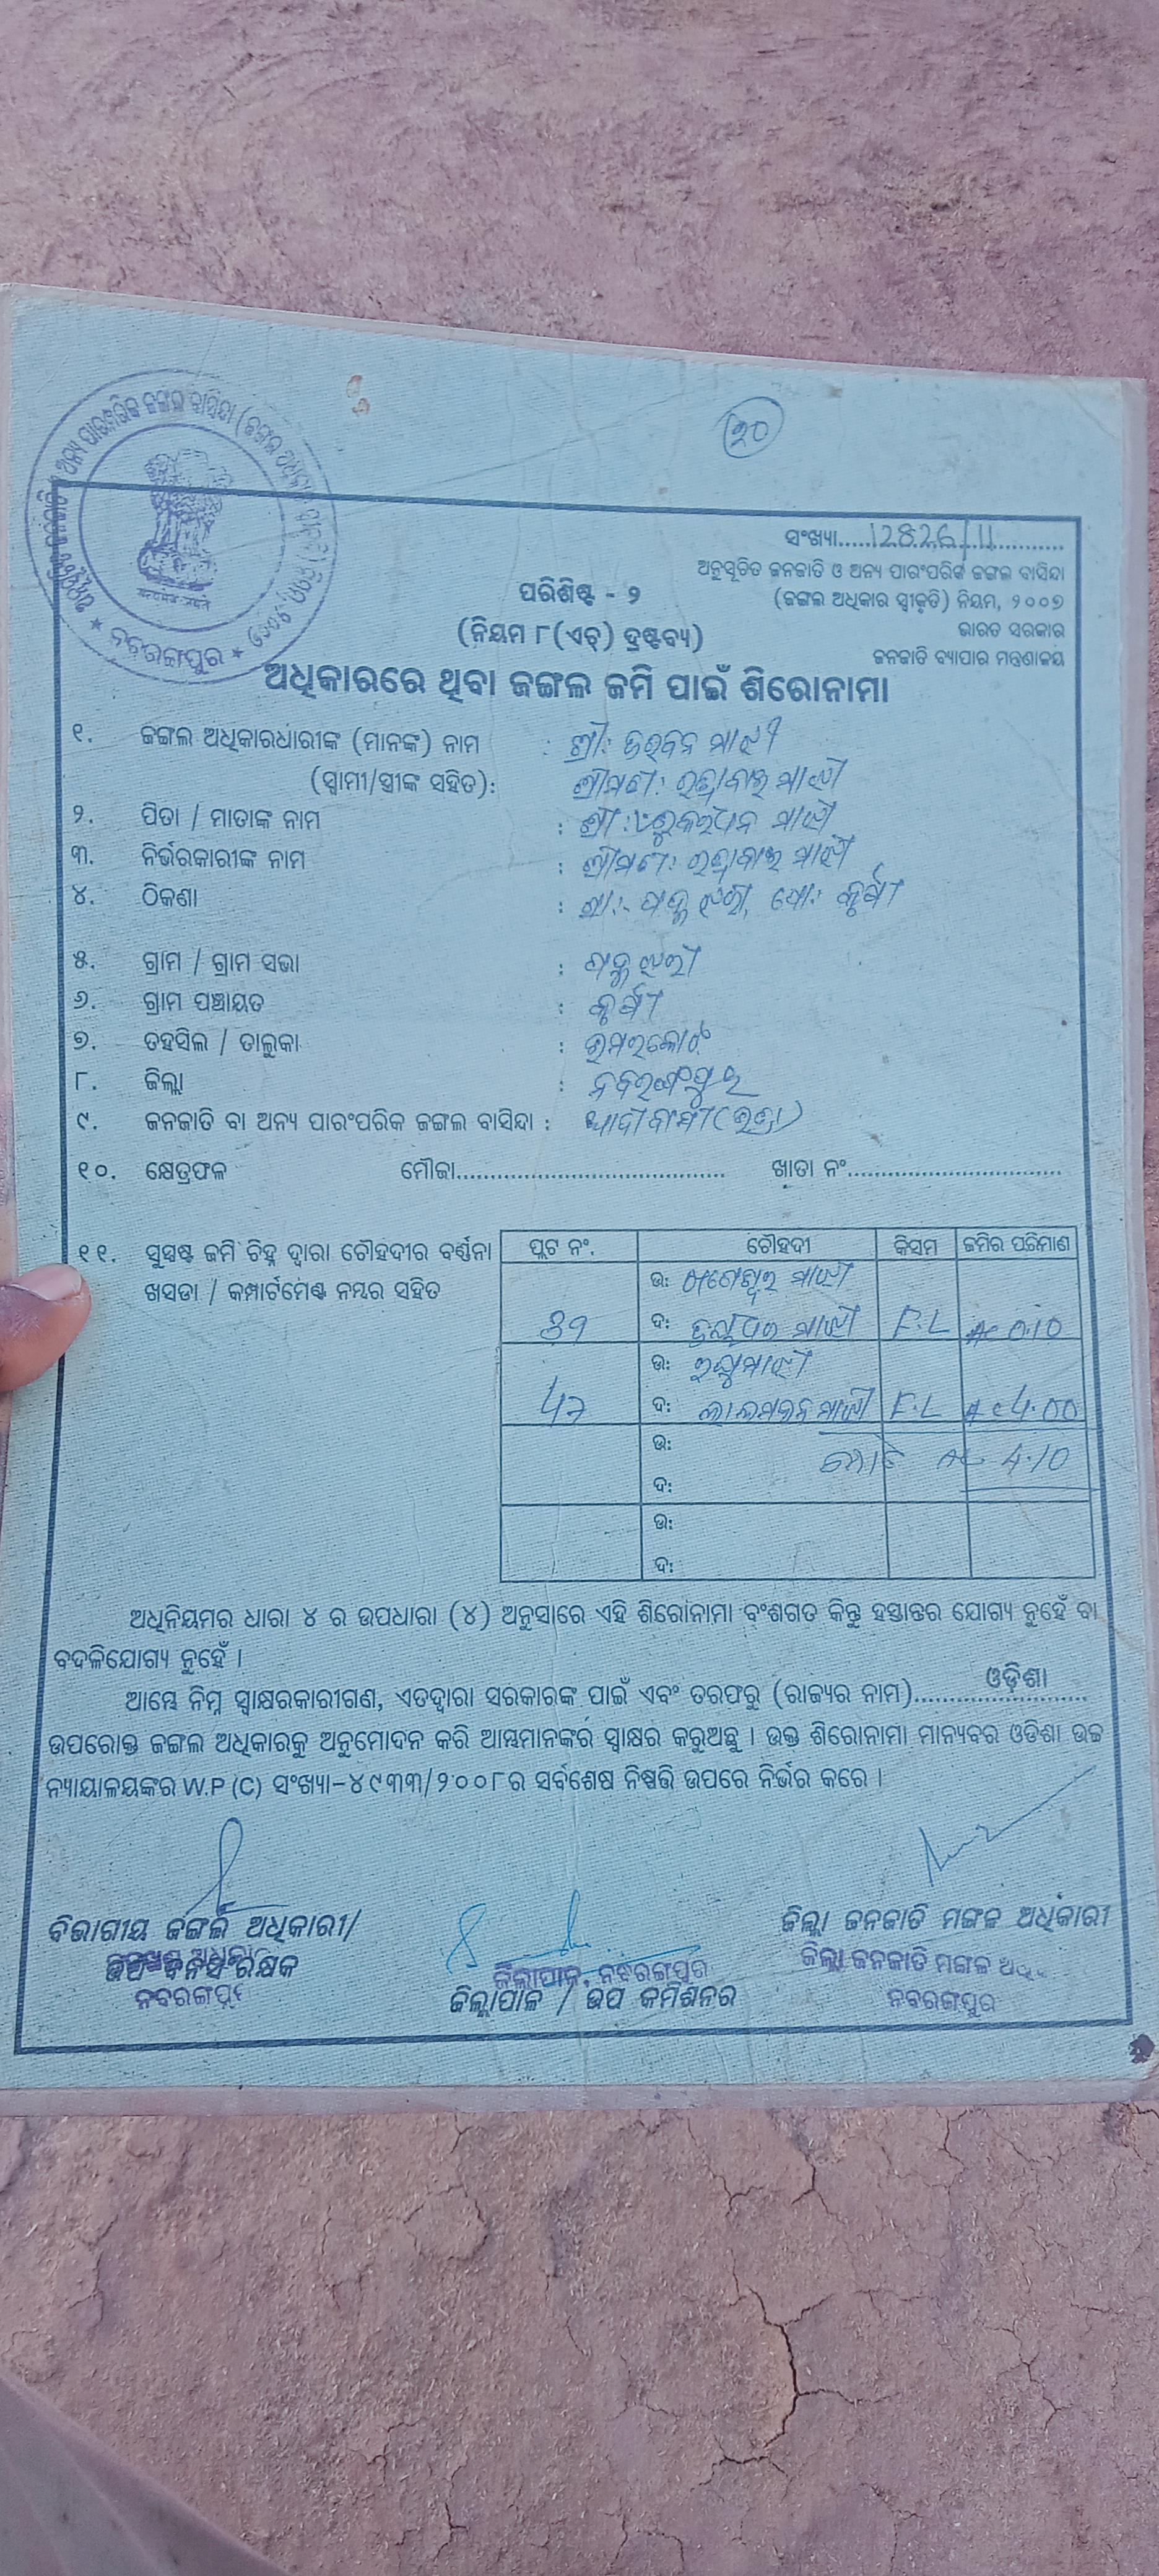 ୨୦
ସଂଖ୍ୟା.....12826/11
ଅନୁସୂଚିତ ଜନଜାତି ଓ ଅନ୍ୟ ପାରଂପରିକ ଜଙ୍ଗଲ ବାସିନ୍ଦା
(ଜଙ୍ଗଲ ଅଧିକାର ସ୍ୱୀକୃତି) ନିୟମ, ୨୦୦୭
ଭାରତ ସରକାର
ଜନଜାତି ବ୍ୟାପାର ମନ୍ତ୍ରଣାଳୟ
ନବରଙ୍ଗପୁର
ପରିଶିଷ୍ଟ - ୨
(ନିୟମ ୮(ଏଚ୍) ଦ୍ରଷ୍ଟବ୍ୟ)
ଅଧିକାରରେ ଥିବା ଜଙ୍ଗଲ ଜମି ପାଇଁ ଶିରୋନାମା
୧. ଜଙ୍ଗଲ ଅଧିକାରଧାରୀଙ୍କ (ମାନଙ୍କ) ନାମ : ଶ୍ରୀ: ମାଝୀ
(ସ୍ୱାମୀ/ସ୍ତ୍ରୀଙ୍କ ସହିତ): ଶ୍ରୀମତୀ: ମାଝୀ
୨. ପିତା / ମାତାଙ୍କ ନାମ : ଶ୍ରୀ: ମାଝୀ
୩. ନିର୍ଭରକାରୀଙ୍କ ନାମ : ଶ୍ରୀମତୀ: ମାଝୀ
୪. ଠିକଣା :
୫. ଗ୍ରାମ / ଗ୍ରାମ ସଭା :
୬. ଗ୍ରାମ ପଞ୍ଚାୟତ :
୭. ତହସିଲ / ତାଲୁକା : ଉମରକୋଟ
୮. ଜିଲ୍ଲା : ନବରଙ୍ଗପୁର
୯. ଜନଜାତି ବା ଅନ୍ୟ ପାରଂପରିକ ଜଙ୍ଗଲ ବାସିନ୍ଦା : ଆଦୀବାସୀ
୧୦. କ୍ଷେତ୍ରଫଳ ମୌଜା........................ ଖାତା ନଂ........................
୧୧. ସୁସ୍ପଷ୍ଟ ଜମି ଚିହ୍ନ ଦ୍ୱାରା ଚୌହଦୀର ବର୍ଣ୍ଣନା
ଖସଡା / କମ୍ପାର୍ଟମେଣ୍ଟ ନମ୍ଭର ସହିତ
ପ୍ଲଟ ନଂ. ଚୌହଦୀ କିସମ ଜମିର ପରିମାଣ
ଉ: ମାଝୀ
ଦ: ମାଝୀ F.L Ac 0.10
ଉ: ମାଝୀ
47 ଦ: ମାଝୀ F.L Ac 4.00
ଉ: ମୋଟ Ac 4.10
ଦ:
ଉ:
ଦ:
ଅଧିନିୟମର ଧାରା ୪ ର ଉପଧାରା (୪) ଅନୁସାରେ ଏହି ଶିରୋନାମା ବଂଶଗତ କିନ୍ତୁ ହସ୍ତାନ୍ତର ଯୋଗ୍ୟ ନୁହେଁ ବା
ବଦଳିଯୋଗ୍ୟ ନୁହେଁ ।
ଆମ୍ଭେ ନିମ୍ନ ସ୍ୱାକ୍ଷରକାରୀଗଣ, ଏତଦ୍ୱାରା ସରକାରଙ୍କ ପାଇଁ ଏବଂ ତରଫରୁ (ରାଜ୍ୟର ନାମ).......ଓଡ଼ିଶା.......
ଉପରୋକ୍ତ ଜଙ୍ଗଲ ଅଧିକାରକୁ ଅନୁମୋଦନ କରି ଆମ୍ଭମାନଙ୍କର ସ୍ୱାକ୍ଷର କରୁଅଛୁ । ଉକ୍ତ ଶିରୋନାମା ମାନ୍ୟବର ଓଡିଶା ଉଚ୍ଚ
ନ୍ୟାୟାଳୟଙ୍କର W.P (C) ସଂଖ୍ୟା-୪୯୩୩/୨୦୦୮ର ସର୍ବଶେଷ ନିଷ୍ପତ୍ତି ଉପରେ ନିର୍ଭର କରେ ।
ବିଭାଗୀୟ ଜଙ୍ଗଲ ଅଧିକାରୀ/
ଉପ ବନସଂରକ୍ଷକ
ନବରଙ୍ଗପୁର
ଜିଲ୍ଲାପାଳ, ନବରଙ୍ଗପୁର
ଜିଲ୍ଲାପାଳ / ଉପ କମିଶନର
ଜିଲ୍ଲା ଜନଜାତି ମଙ୍ଗଳ ଅଧିକାରୀ
ଜିଲ୍ଲା ଜନଜାତି ମଙ୍ଗଳ
ନବରଙ୍ଗପୁର